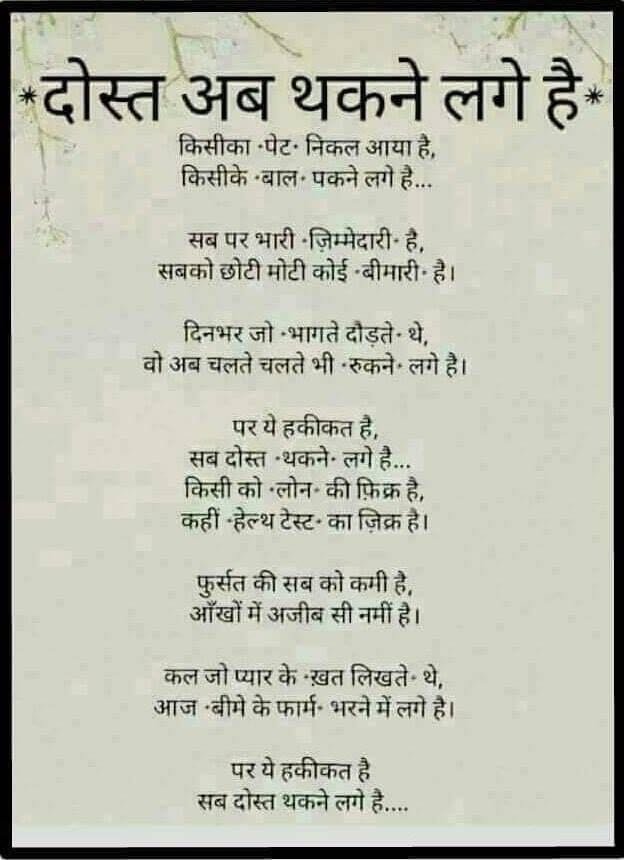 *दोस्त अब थकने लगे है*
किसीका •पेट• निकल आया है,
किसीके •बाल• पकने लगे है...
सब पर भारी •ज़िम्मेदारी• है,
सबको छोटी मोटी कोई •बीमारी• है।
दिनभर जो •भागते दौड़ते• थे,
वो अब चलते चलते भी •रुकने• लगे है।
पर ये हकीकत है,
सब दोस्त •थकने• लगे है...
किसी को •लोन• की फ़िक्र है,
कहीं •हेल्थ टेस्ट• का ज़िक्र है।
फुर्सत की सब को कमी है,
आँखों में अजीब सी नमीं है।
कल जो प्यार के •ख़त लिखते• थे,
आज •बीमे के फार्म• भरने में लगे है।
पर ये हकीकत है
सब दोस्त थकने लगे है....